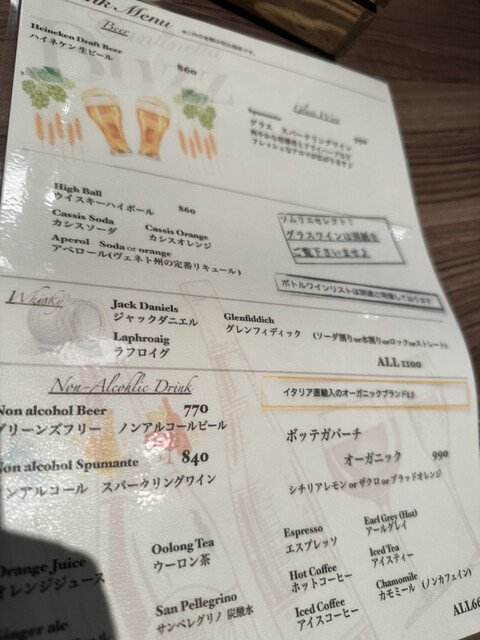 nk Menu
Beer
Heineken Draft Beer
ハイネケン生ビール
860
Glass Wine
Spumante
グラス　スパークリングワイン 950
High Ball
ウイスキーハイボール 860
Cassis Soda
カシスソーダ
Cassis Orange
カシスオレンジ
Aperol Soda or orange
アペロール(ヴェネト州の定番リキュール)
ソムリエセレクト!
グラスワインは別紙を
ご覧下さいませ♪
ボトルワインリストは別途ご用意しております
Whisky
Jack Daniels
ジャックダニエル
Laphroaig
ラフロイグ
Glenfiddich
グレンフィディック
(ソーダ割りor水割りorロックorストレート)
ALL 1100
Non-Alcohlic Drink
Non alcohol Beer 770
グリーンズフリー　ノンアルコールビール
Non alcohol Spumante 840
ンアルコール　スパークリングワイン
イタリア直輸入のオーガニックブランド
ボッテガバーチ
オーガニック 990
シチリアレモン or ザクロ or ブラッドオレンジ
Orange Juice
オレンジジュース
Ginger ale
Oolong Tea
ウーロン茶
San Pellegrino
サンペレグリノ 炭酸水
Espresso
エスプレッソ
Hot Coffee
ホットコーヒー
Iced Coffee
アイスコーヒー
Earl Grey (Hot)
アールグレイ
Iced Tea
アイスティー
Chamomile
カモミール (ノンカフェイン)
ALL66